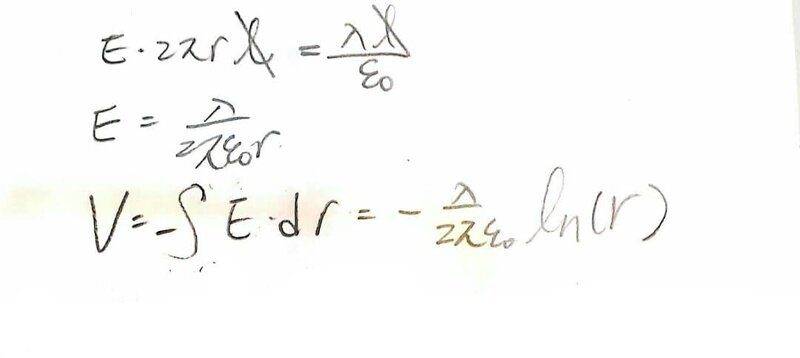 E · 2πrL = λL/ε₀
E = λ/2πε₀r
V = -∫ E · dr = - λ/2πε₀ ln(r)